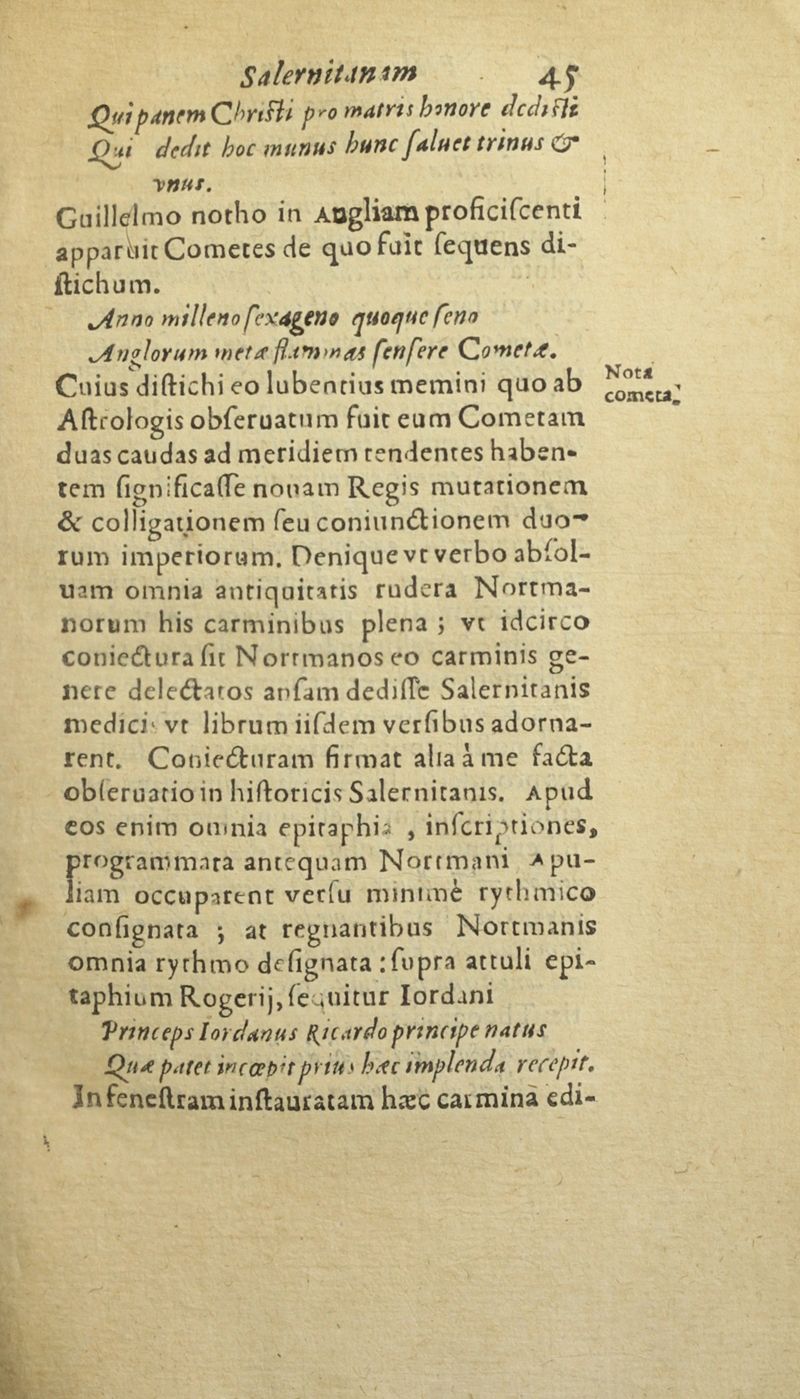 Salernitanam 45
Qui panem Christi pro matris honore dedisti
Qui dedit hoc munus hunc ſaluet trinus &
vnus.
Guillelmo notho in Angliam proficiſcenti
apparuit Cometes de quo fuit ſequens di-
ſtichum.
Anno milleno ſexageno quoque ſeno
Anglorum metæ flammas ſenſere Cometæ.
Cuius diſtichi eo lubentius memini quo ab
Nota
cometa.
Aſtrologis obſeruatum fuit eum Cometam
duas caudas ad meridiem tendentes haben-
tem ſignificaſſe nouam Regis mutationem
& colligationem ſeu coniunctionem duo-
rum imperiorum. Denique vt verbo abſol-
uam omnia antiquitatis rudera Nortma-
norum his carminibus plena ; vt idcirco
coniectura ſit Nortmanos eo carminis ge-
nere delectatos anſam dediſſe Salernitanis
medicis vt librum iiſdem verſibus adorna-
rent. Coniecturam firmat alia à me facta
obſeruatio in hiſtoricis Salernitanis. Apud
eos enim omnia epitaphia , inſcriptiones,
programmata antequam Nortmani Apu-
liam occuparent verſu minimè rythmico
conſignata ; at regnantibus Nortmanis
omnia rythmo deſignata : ſupra attuli epi-
taphium Rogerij, ſequitur Iordani
Princeps Iordanus Ricardo principe natus
Quæ patet incœpit prius hæc implenda recepit.
In feneſtram inſtauratam hæc carmina edi-